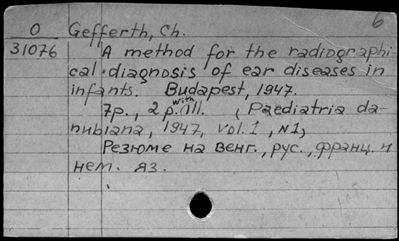 6
O Gefferth, Ch.
31076 A method for the radiographi-
cal diagnosis of ear diseases in
infants. Budapest, 1947.
7p., 2 p. with ill. (Paediatria da-
nubiana, 1947, vol. 1, N1)
Резюме на венг., рус., франц. и
нем. яз.